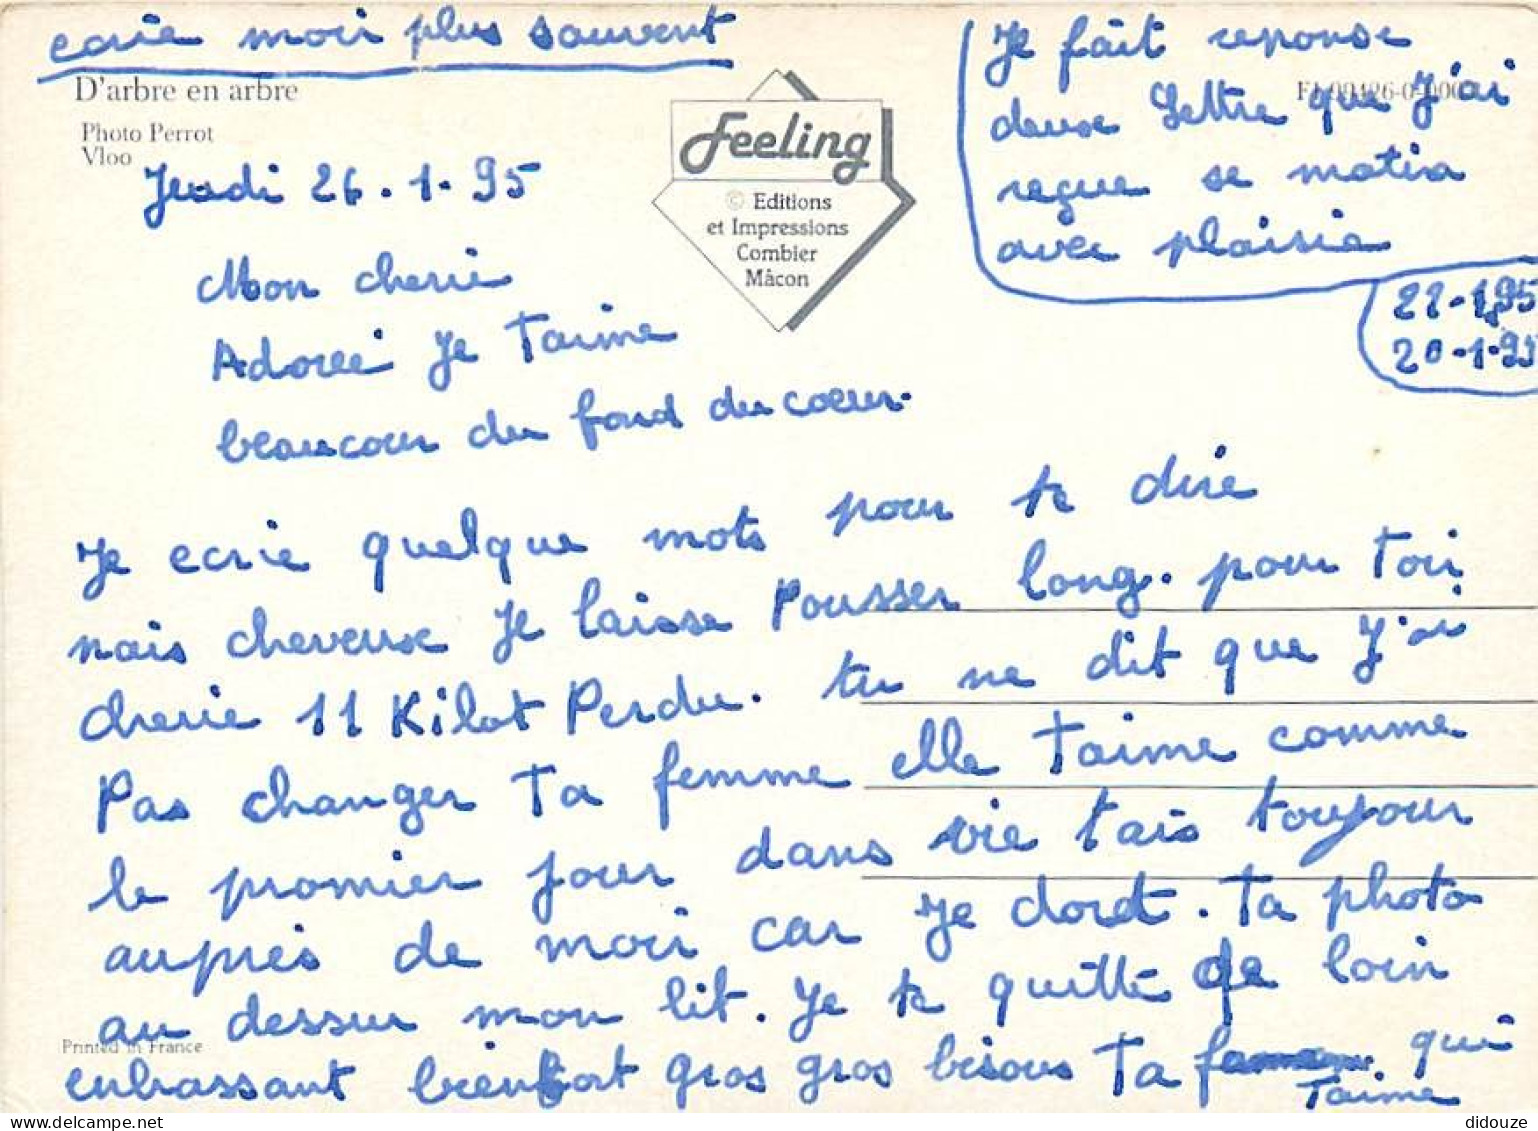 ecrie moi plus souvent
D'arbre en arbre
Photo Perrot
Vloo
Feeling
© Editions
et Impressions
Combier
Mâcon
Je fait reponse
deuxe Lettre que J'ai
reçue se matin
avec plaisir
21-1,95
20-1-95
Jeudi 26.1.95
Mon cherie
Adoreé Je Taime
beaucour du fond du coeur.
Je ecrie quelque mots pour te dire
mais cheveuxe Je laisse Pousser long. pour Toi
cherie 11 Kilot Perdu. tu me dit que J'ai
Pas changer Ta femme elle Taime comme
le promier jour dans vie tais toujour
auprés de moi car Je dort. Ta photo
au dessur mon lit. Je te quitte de loin
enbrassant bien fort gros gros bisous Ta femme qui
Taime
Printed in France
didouze